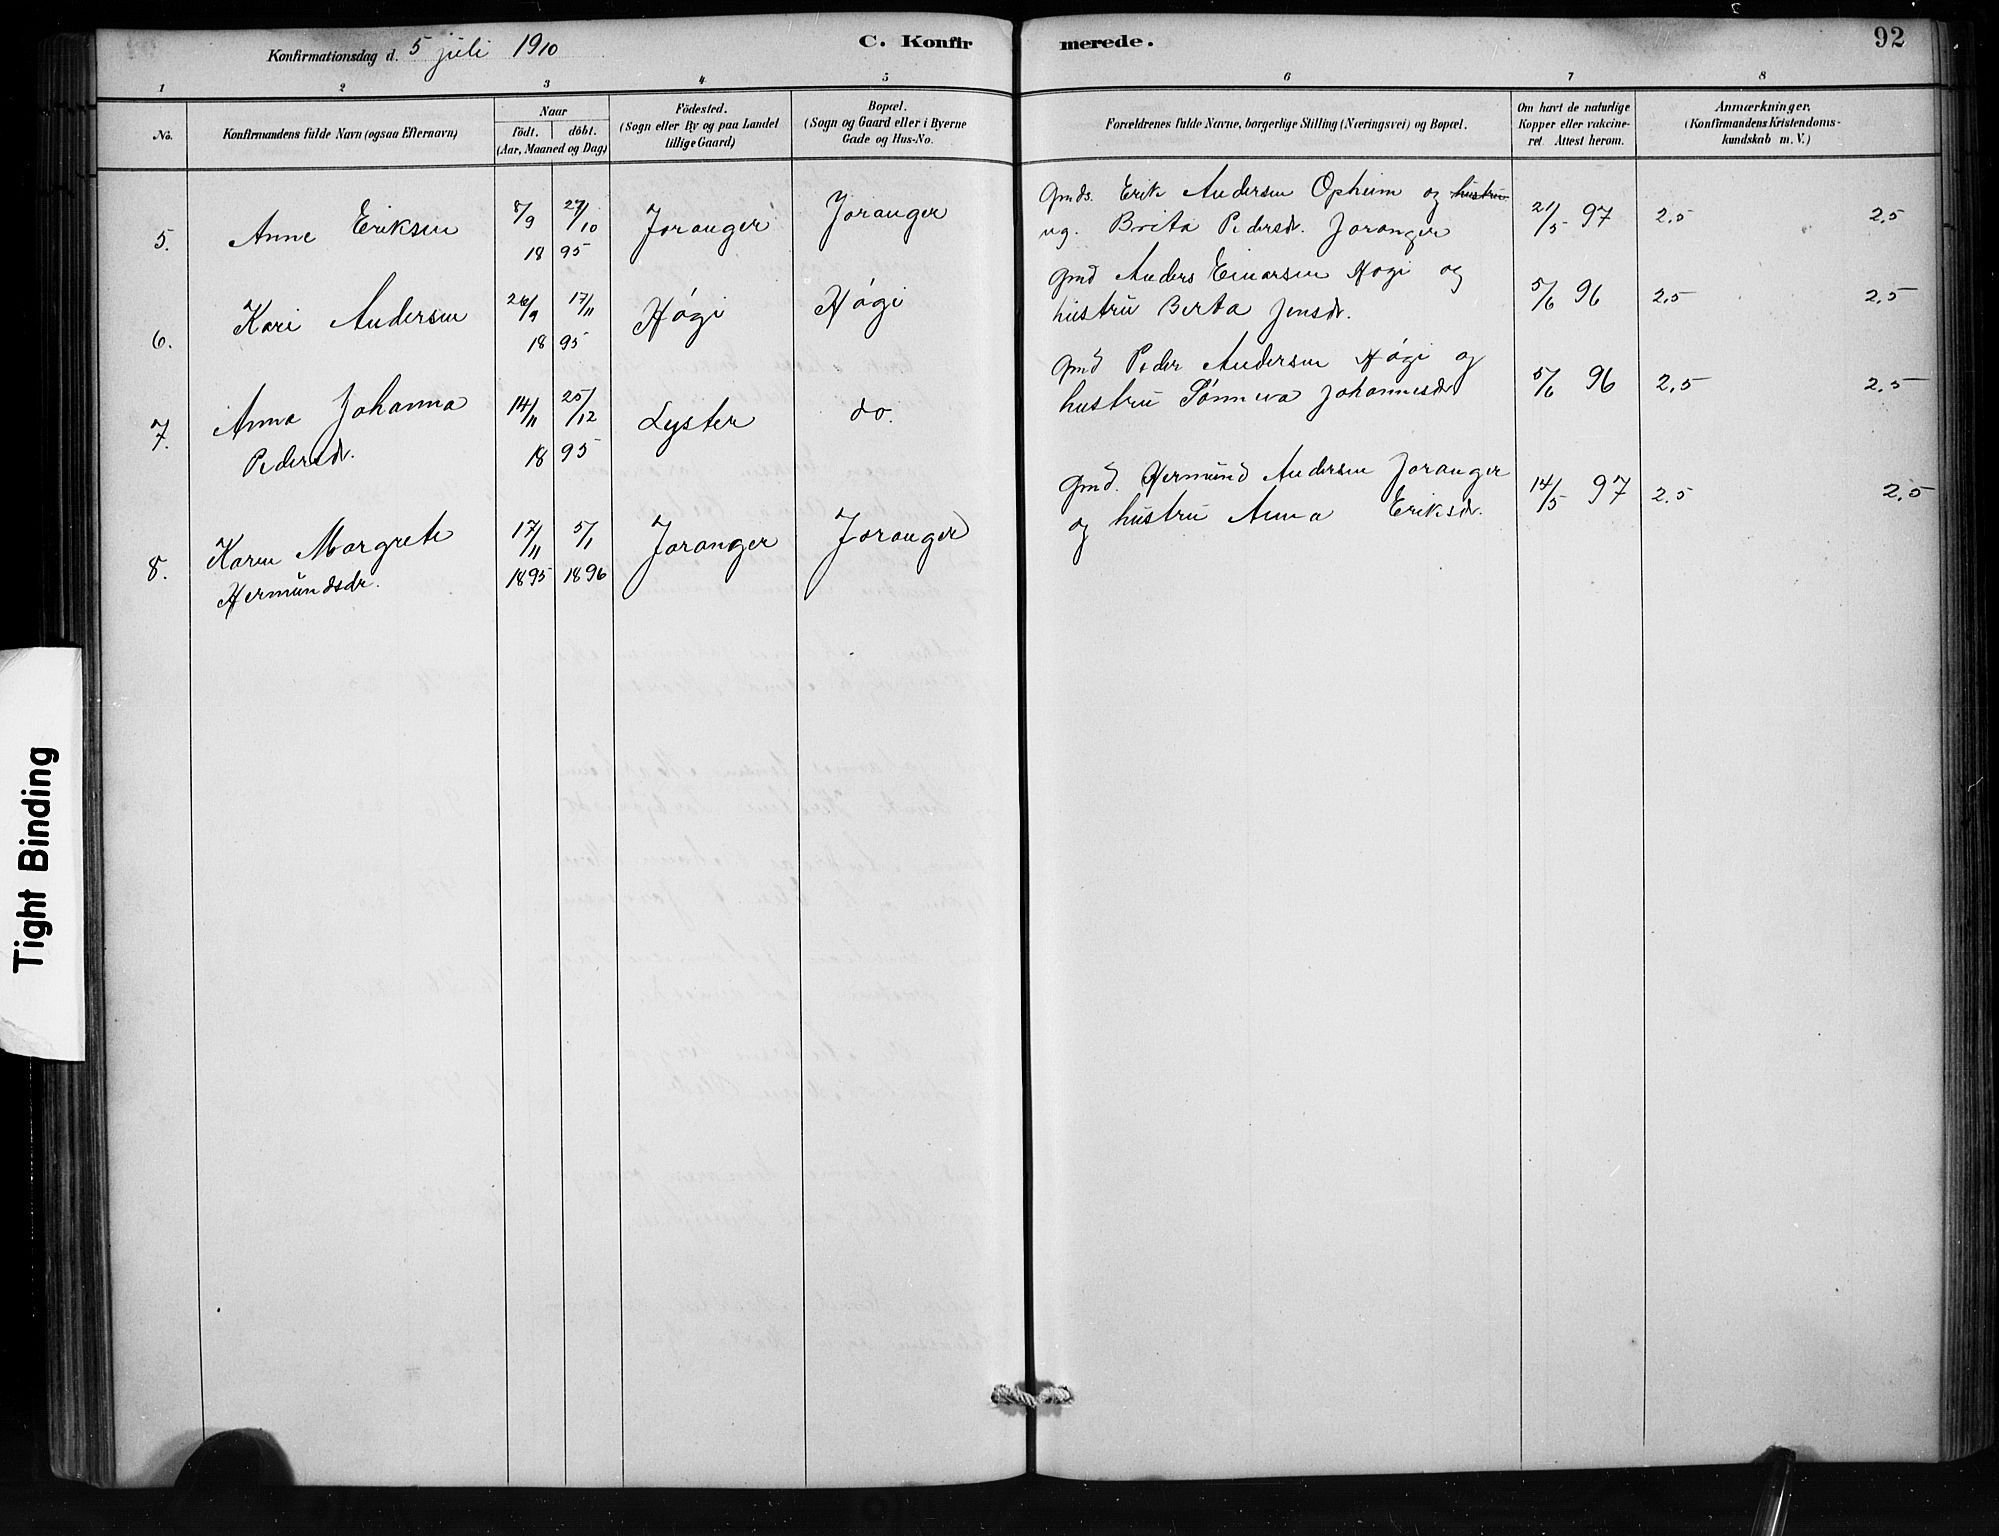 Konfirmationsdag d. 5 juli 1910
C. Konfir merede.
92
1 2 3 4 5 6 7 8
No.
Konfirmandens fulde Navn (ogsaa Efternavn)
Naar
födt. döbt.
(Aar, Maaned og Dag)
Födested.
(Sogn eller By og paa Landet
tillige Gaard)
Bopæl.
(Sogn og Gaard eller i Byerne
Gade og Hus-No.
Forældrenes fulde Navne, borgerlige Stilling (Næringsvei) og Bopæl.
Om havt de naturlige
Kopper eller vakcine-
ret. Attest herom.
Anmærkninger,
(Konfirmandens Kristendoms-
kundskab m. V.)
5. Anne Eriksen 8/9 27/10 Joranger Joranger
18 95
Gmds. Erik Andersen Opheim og hustru
ug. Brita Pedersdr. Joranger 21/5 97 2.5 2.5
6. Kari Andersen 26/9 17/11 Høgi Høgi
18 95
Gmd Anders Einarsen Høgi og
hustru Berta Jensdr. 5/6 96 2.5 2.5
7. Anna Johanna 14/11 25/12 Lyster do.
Pedersdr. 18 95
Gmd Peder Andersen Høgi og
hustru Sønneva Johannesdr 5/6 96 2.5 2.5
8. Karen Margrete 17/11 5/1 Joranger Joranger
Hermundsdr. 1895 1896
Gmd. Hermund Andersen Joranger
og hustru Anna Eriksdr. 14/5 97 2.5 2.5
Tight Binding